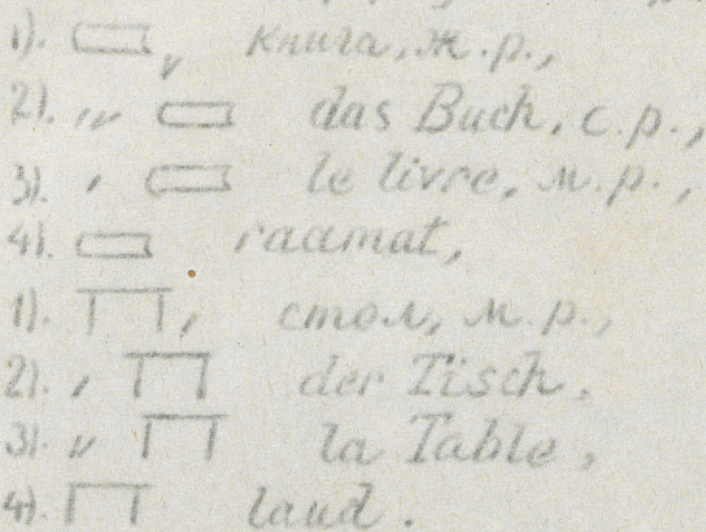 1). книга, ж.р.,
2). das Buch, с.р.,
3). le livre, м.р.,
4). raamat,
1). стол, м.р.,
2). der Tisch.
3). la Table,
4). laud.